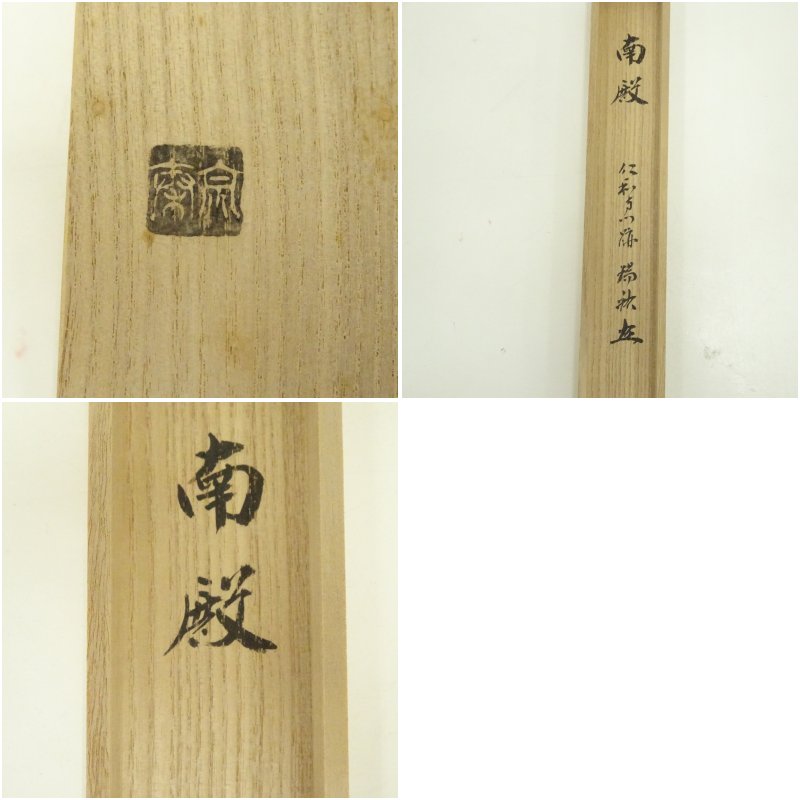 南殿 仁和寺門跡 瑞祐
南殿